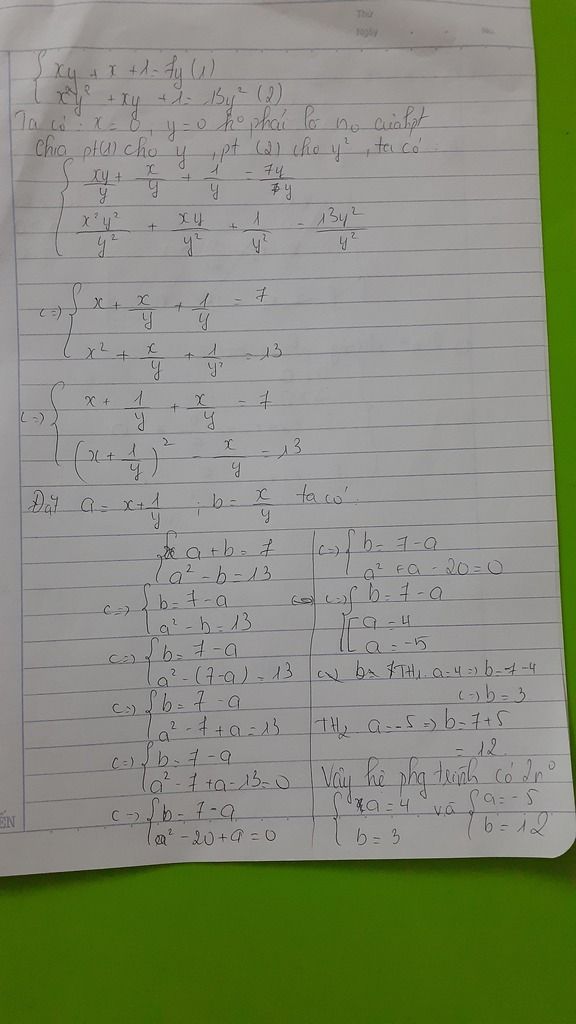 Thứ
Ngày
{ xy + x + 1 = 7y (1)
x²y² + xy + 1 = 13y² (2)
Ta có: x = 0, y = 0 k° phải là n° của hpt
Chia pt(1) cho y, pt (2) cho y², ta có:
{ xy/y + x/y + 1/y = 7y/y
x²y²/y² + xy/y² + 1/y² = 13y²/y²
<=> { x + x/y + 1/y = 7
x² + x/y + 1/y² = 13
<=> { x + 1/y + x/y = 7
(x + 1/y)² - x/y = 13
Đặt a = x + 1/y ; b = x/y ta có:
{ a + b = 7
a² - b = 13
<=> { b = 7 - a
a² - b = 13
<=> { b = 7 - a
a² - (7 - a) = 13
<=> { b = 7 - a
a² - 7 + a = 13
<=> { b = 7 - a
a² - 7 + a - 13 = 0
<=> { b = 7 - a
a² - 20 + a = 0
<=> { b = 7 - a
a² + a - 20 = 0
<=> { b = 7 - a
[ a = 4
a = -5
TH1 a = 4 => b = 7 - 4
<=> b = 3
TH2 a = -5 => b = 7 + 5
= 12
Vậy hệ phg trình có 2 n°
{ a = 4 và { a = -5
b = 3 b = 12